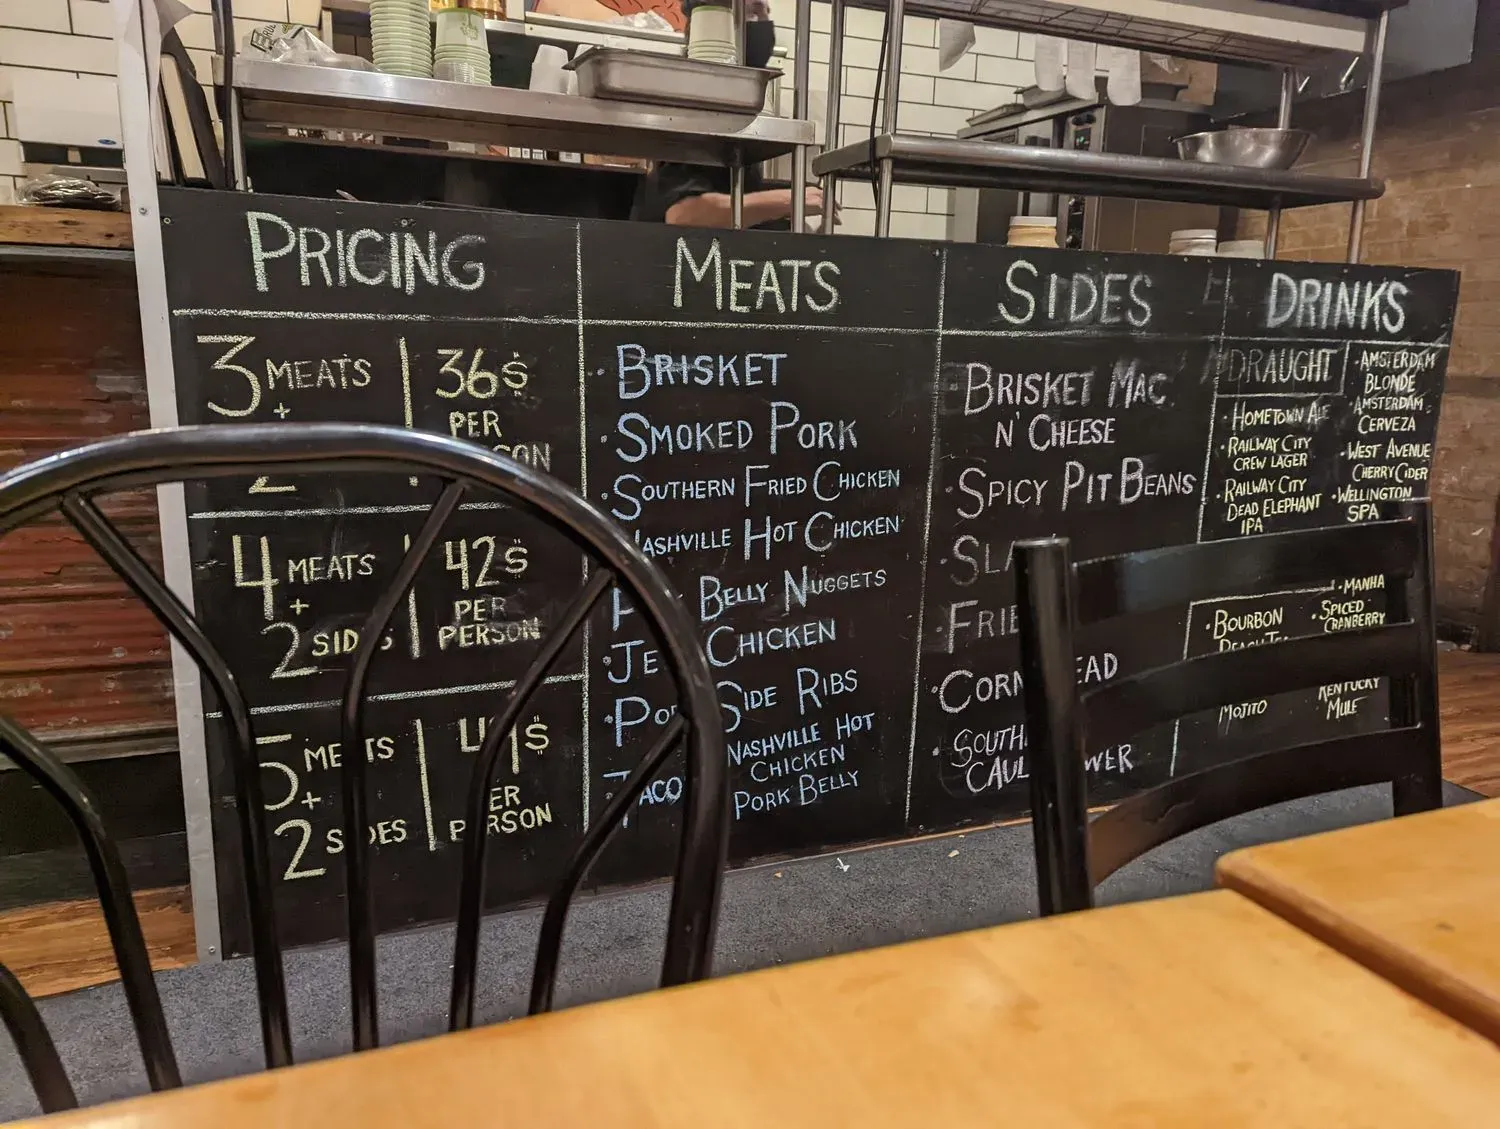 PRICING
3 MEATS
+
2
36$
PER
4 MEATS
+
2 SIDES
42$
PER
PERSON
5 MEATS
+
2 SIDES
PERSON
MEATS
· BRISKET
· SMOKED PORK
· SOUTHERN FRIED CHICKEN
NASHVILLE HOT CHICKEN
BELLY NUGGETS
CHICKEN
SIDE RIBS
TACO
NASHVILLE HOT
CHICKEN
PORK BELLY
SIDES
· BRISKET MAC
N' CHEESE
· SPICY PIT BEANS
· CORNBREAD
CAULIFLOWER
DRINKS
DRAUGHT
· HOMETOWN ALE
· RAILWAY CITY
CREW LAGER
· RAILWAY CITY
DEAD ELEPHANT
IPA
· AMSTERDAM
BLONDE
· AMSTERDAM
CERVEZA
· WEST AVENUE
CHERRY CIDER
· WELLINGTON
SPA
· BOURBON
MOJITO
· MANHA
· SPICED
CRANBERRY
KENTUCKY
MULE